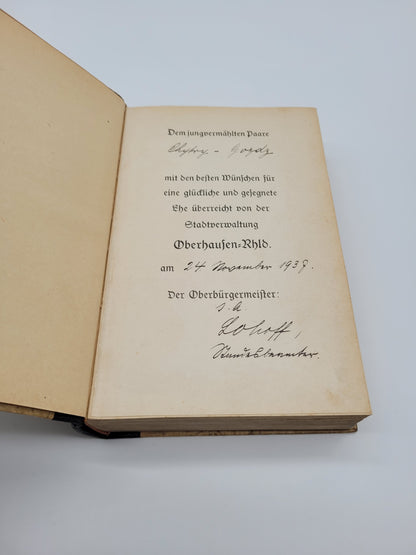 Dem jungvermählten Paare
mit den besten Wünschen für
eine glückliche und gesegnete
Ehe überreicht von der
Stadtverwaltung
Oberhausen=Rhld.
am 24 November 1937.
Der Oberbürgermeister:
Lohoff,
Standesbeamter